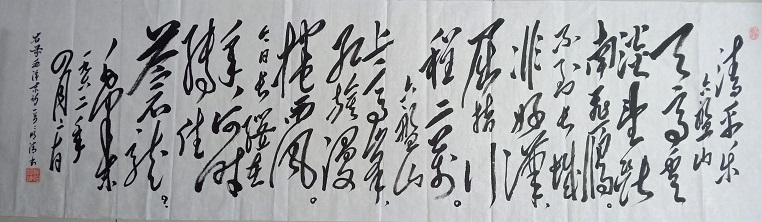 清平乐
六盘山
天高云
淡望断
南飞雁。
不到长城
非好汉，
屈指行
程二万。
六盘山
上高峰，
红旗漫
捲西风。
今日长缨在
手，何时
缚住
苍龙？
毛泽东
一九六二年
四月二十日